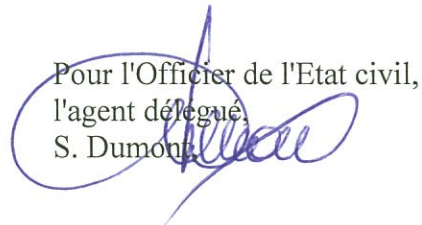 Pour l'Officier de l'Etat civil,
l'agent délégué,
S. Dumont,